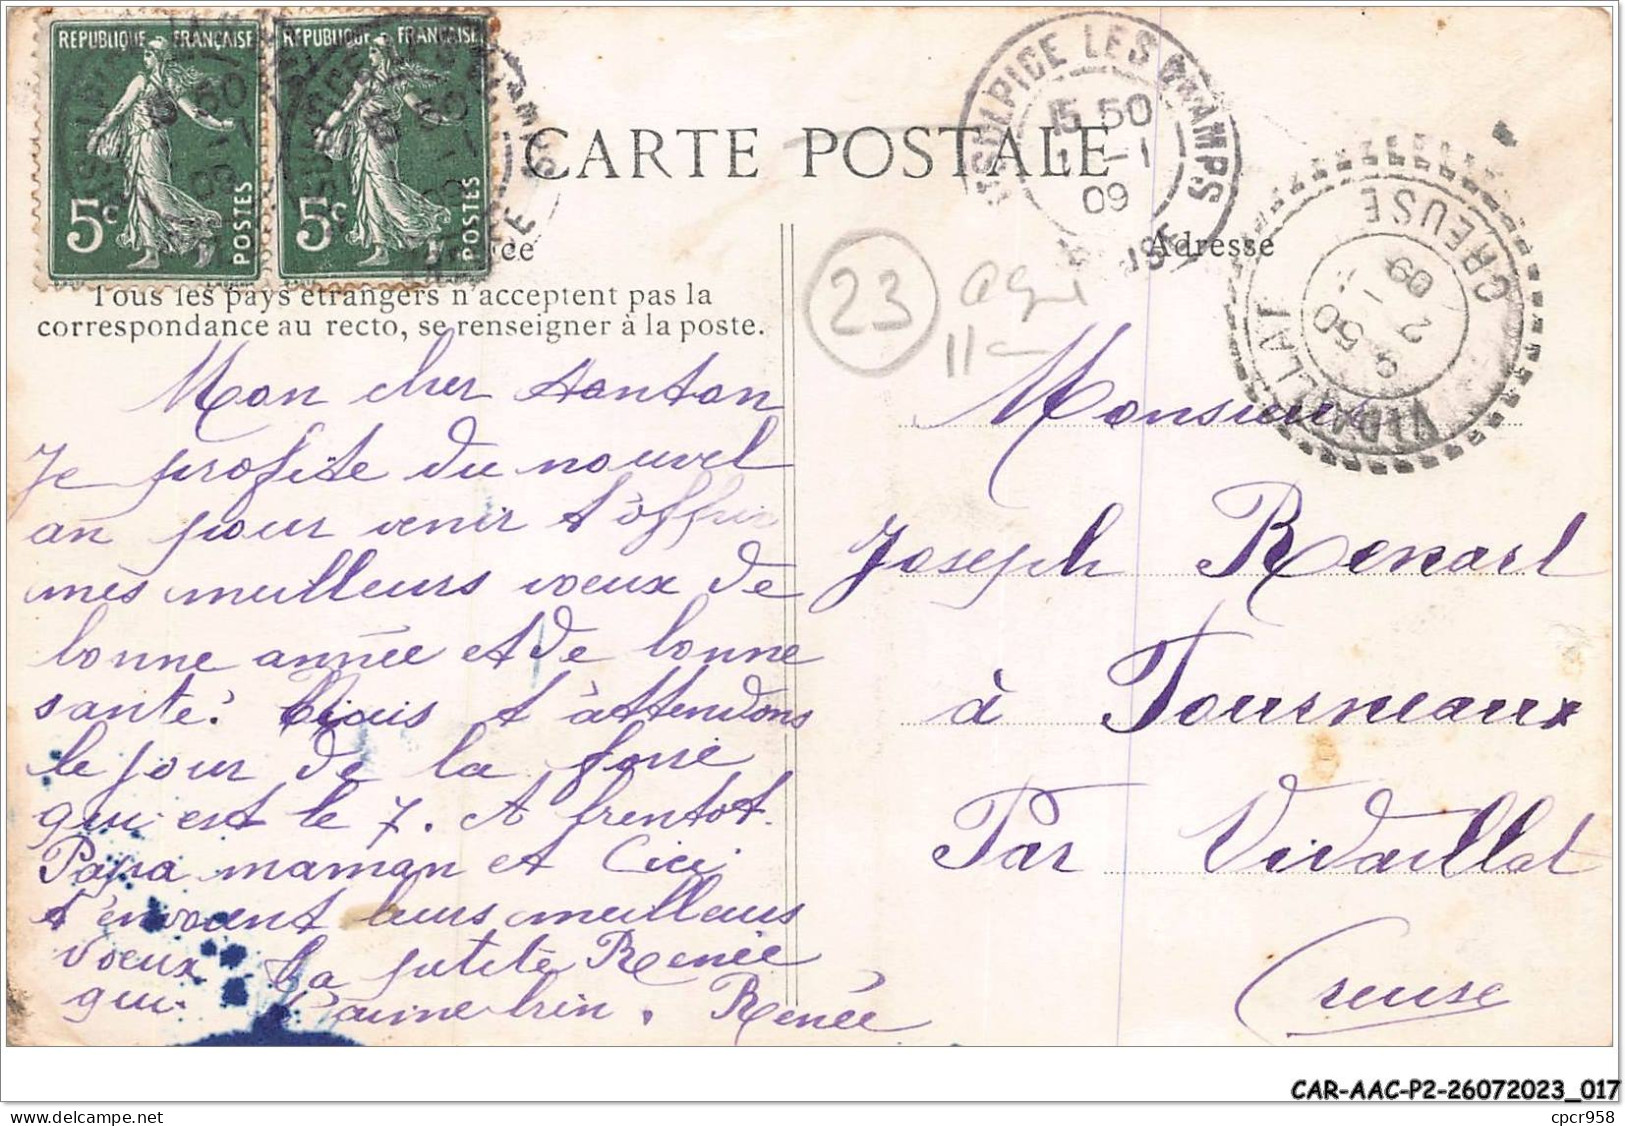 REPUBLIQUE FRANÇAISE
5c POSTES
REPUBLIQUE FRANÇAISE
5c POSTES
CARTE POSTALE
SULPICE LES CHAMPS
15 50
1 -1
09
CREUSE
9 50
2 -1
09
VIDAILLAT
CREUSE
ce
Adresse
Tous les pays étrangers n'acceptent pas la
correspondance au recto, se renseigner à la poste.
23
11
Mon cher tonton
Je profite du nouvel
an pour venir t'offrir
mes meilleurs voeux de
bonne année et de bonne
santé. t'attendons
le jour de la foire
qui est le 7. A bientot.
Papa maman et Cici
t'envoient leurs meilleurs
voeux. La petite Renée
qui t'aime bien. Renée
Monsieur
Joseph Renard
à Tourneaux
Par Vidaillat
Creuse
CAR-AAC-P2-26072023_017
cpcr958